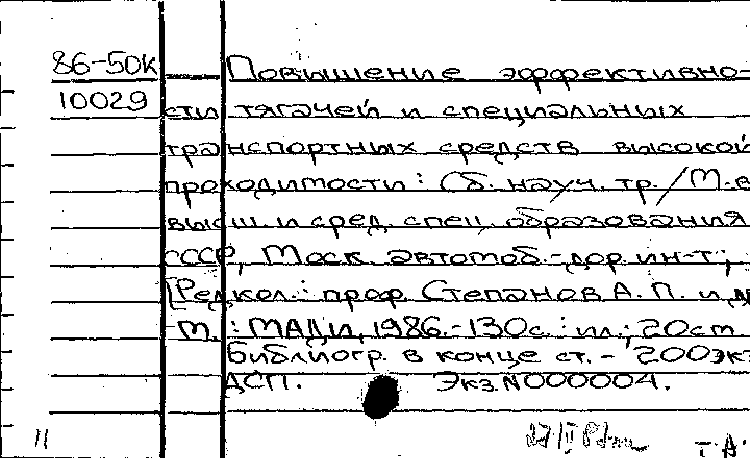 86-50к Повышение эффективно-
10029 сти тягачей и специальных
транспортных средств высокой
проходимости: Сб. науч. тр. / М-в
высш. и сред. спец. образования
СССР, Моск. автомоб.-дор. ин-т;
[Редкол.: проф. Степанов А. П. и д
М.: МАДИ, 1986.-130с.: ил.; 20см
Библиогр. в конце ст. - 200экз
ДСП. Экз.N000004.
11 Т.А.